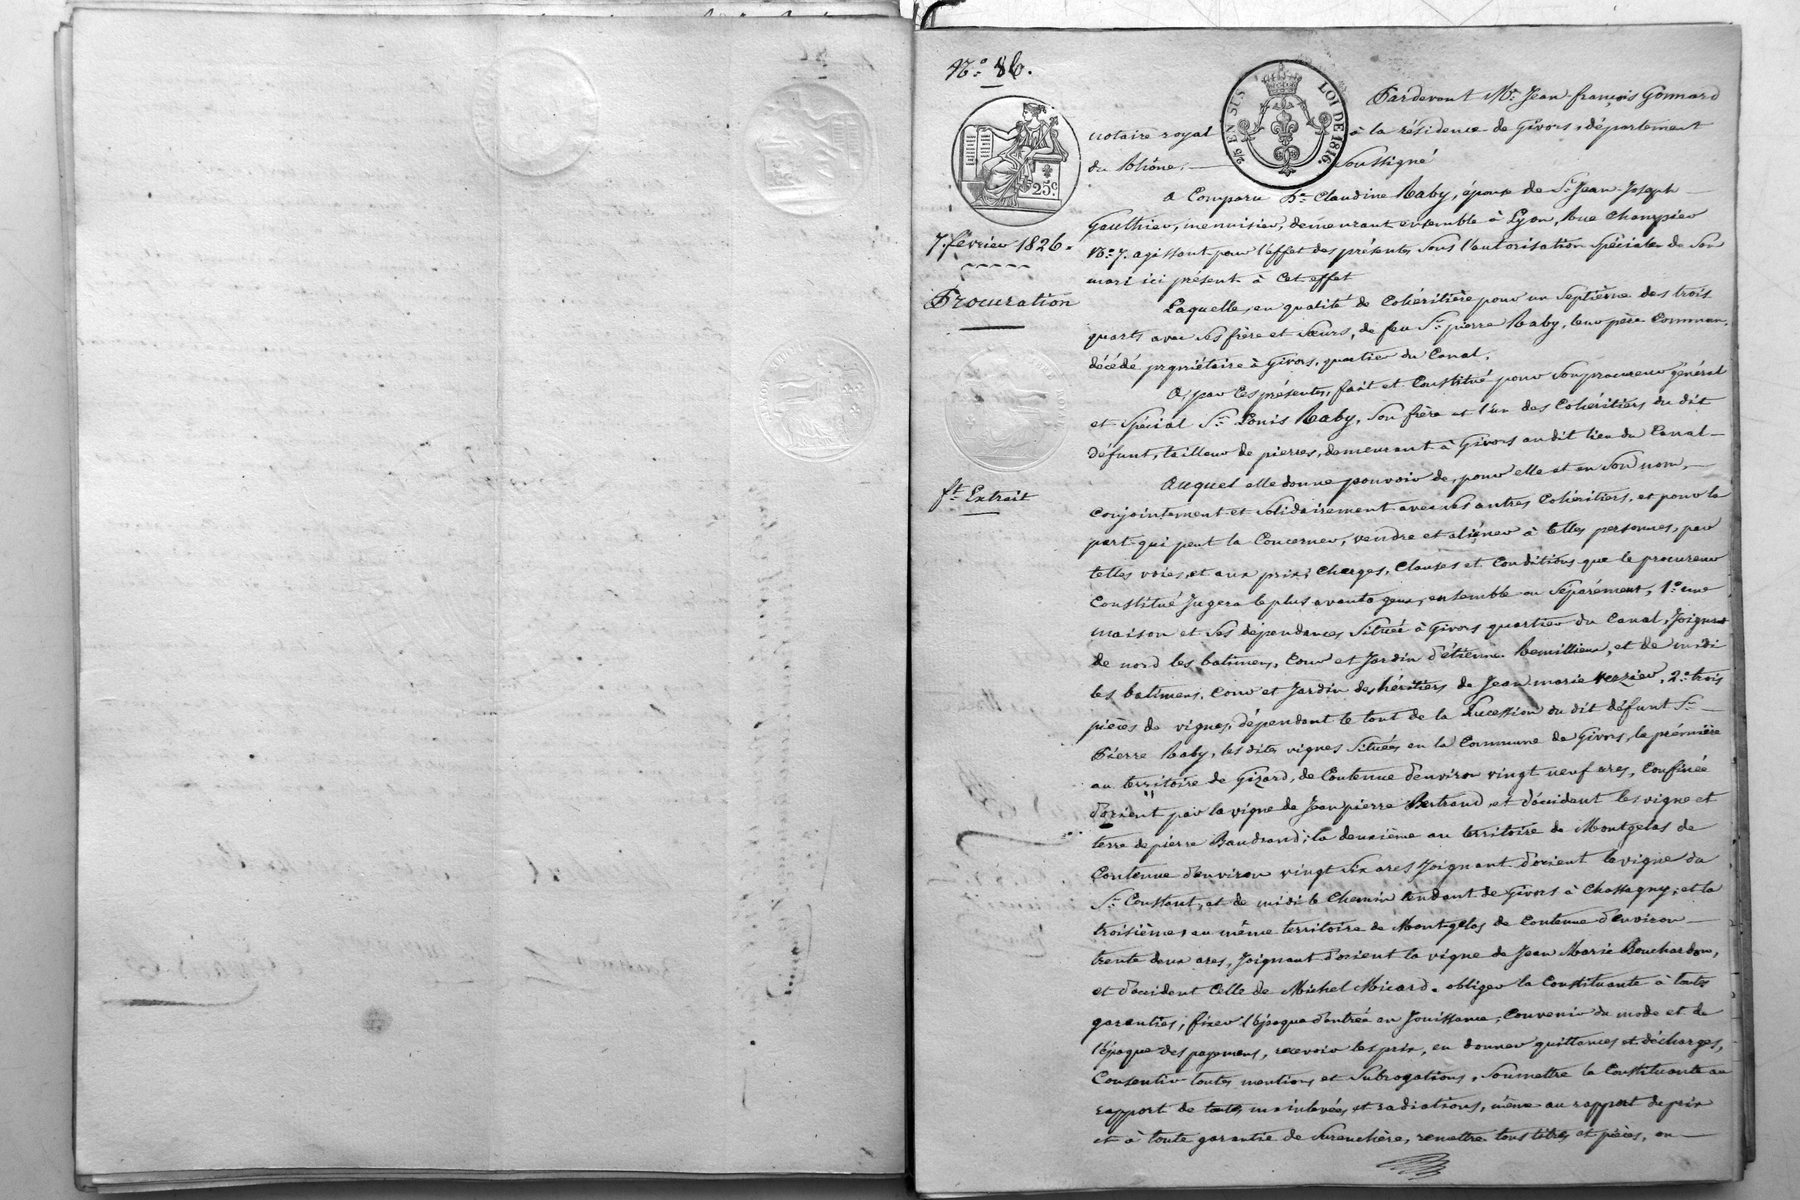 N.° 86.
25 EN SUS
LOI DE 1816.
25c.
7. février 1826.
Procuration
ft. Extrait
Pardevant Me. Jean-françois Gonnard
notaire royal à la résidence de Givors, département
du Rhône, soussigné
a Comparu De. Claudine Raby, épouse de Sr. Jean-Joseph
Gauthier, menuisier, demeurant ensemble à Lyon, Rue Champier
No. 7. agissant pour l'effet des présentes sous l'autorisation spéciale de son
mari ici présent à cet effet
Laquelle, en qualité de Cohéritière pour un septième des trois
quarts avec ses frère et sœurs, de feu Sr. pierre Raby, leur père Commun,
décédé propriétaire à Givors, quartier du Canal,
A, par Ces présentes, fait et Constitué pour son procureur général
et spécial Sr. Louis Raby, son frère et l'un des Cohéritiers du dit
défunt, tailleur de pierres, demeurant à Givors au dit lieu du Canal
Auquel elle donne pouvoir de, pour elle et en son nom,
Conjointement et solidairement avec ses autres Cohéritiers, et pour la
part qui peut la Concerner, vendre et aliéner à telles personnes, par
telles voies et aux prix, Charges, Clauses et Conditions que le procureur
Constitué Jugera le plus avantageux, ensemble ou séparément, 1.° une
maison et ses dépendances située à Givors quartier du Canal, Joignant
de nord les batimens, Cour et Jardin d'étienne Remillieux, et de midi
les batimens, Cour et Jardin des héritiers de Jean marie 2.° trois
pièces de vignes, dépendant le tout de la succession du dit défunt Sr.
Pierre Raby, les dites vignes situées en la Commune de Givors, la première
au territoire de Gizard, de Contenue d'environ vingt neuf ares, Confinée
d'orient par la vigne de Jean pierre Bertrand, et d'occident les vigne et
terre de pierre Baudrand; la deuxième au territoire de Montgelas de
Contenue d'environ vingt six ares Joignant d'orient la vigne du
Sr. Constant, et de midi le Chemin tendant de Givors à Chassagny; et la
troisième, au même territoire de Montgelas de Contenue d'environ
trente deux ares, Joignant d'orient la vigne de Jean Marie Bouchardon,
et d'occident Celle de Michel Micard. obliger la Constituante à toutes
garanties, fixer l'époque d'entrée en Jouissance, Convenir du mode et de
l'époque des payemens, recevoir les prix, en donner quittances et décharges,
Consentir toutes mentions et subrogations, soumettre la Constituante au
rapport de toutes mainlevées et radiations, même au rapport du prix
et à toute garantie de surenchère, remettre tous titres et pièces, ou